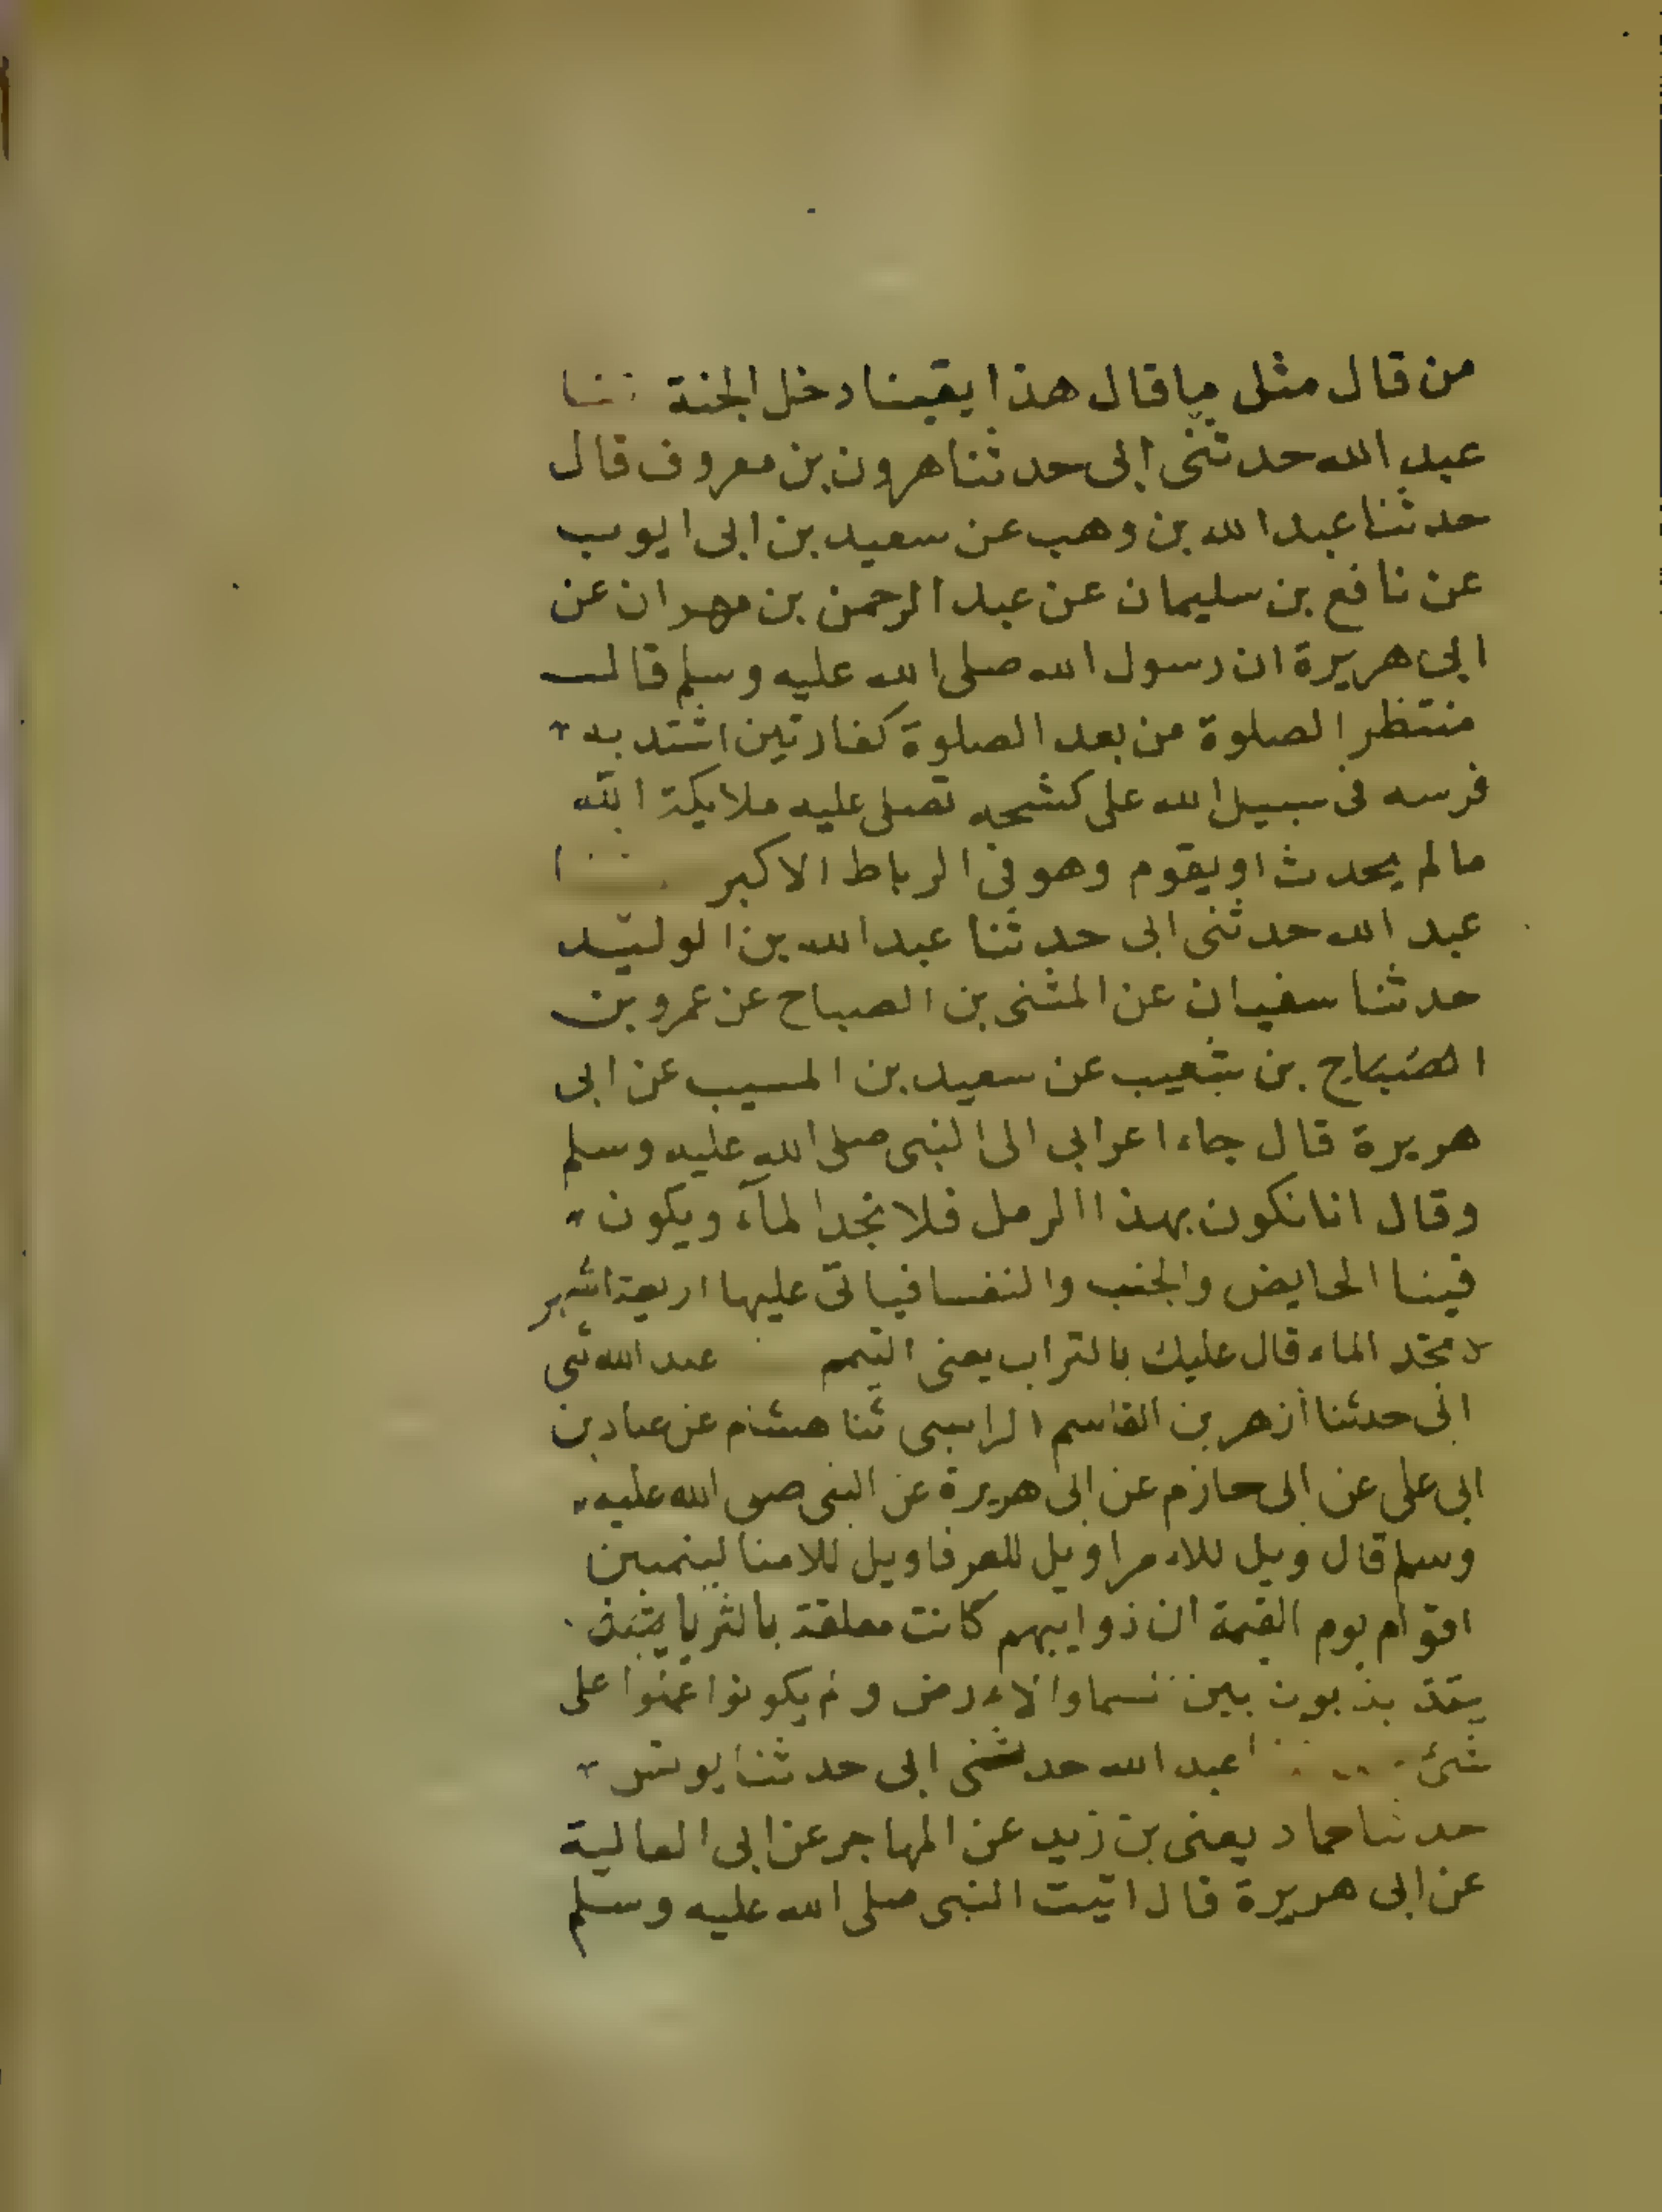 من قال مثل ما قال هذا يقينا دخل الجنة ثنا
عبد الله حدثنى ابى حدثنا هرون بن معروف قال
حدثنا عبد الله بن وهب عن سعيد بن ابى ايوب
عن نافع بن سليمان عن عبد الرحمن بن مهران عن
ابى هريرة ان رسول الله صلى الله عليه وسلم قال
منتظر الصلوة من بعد الصلوة كفارتين اشتد به
فرسه فى سبيل الله على كشحه تصلى عليه ملايكة الله
مالم يحدث او يقوم وهو فى الرباط الاكبر
عبد الله حدثنى ابى حدثنا عبد الله بن الوليد
حدثنا سفيان عن المثنى بن الصباح عن عمرو بن
الصباح بن شعيب عن سعيد بن المسيب عن ابى
هريرة قال جاء اعرابى الى النبى صلى الله عليه وسلم
وقال انا نكون بهذا الرمل فلا نجد المآء ويكون
فينا الحايض والجنب والنفسا فياتى عليها اربعة اشهر
لا تجد الماء قال عليك بالتراب يعنى التيمم عبد الله ثنى
ابى حدثنا ازهر بن القاسم الراسبى ثنا هشام عن عباد بن
ابى على عن ابى حازم عن ابى هريرة عن النبى صلى الله عليه
وسلم قال ويل للامرا ويل للعرفا ويل للامنا ليتمنين
اقوام يوم القيمة ان ذوايبهم كانت معلقة بالثريا
بذبون بين السما والارض ولم يكونوا عملوا على
شئ عبد الله حدثنى ابى حدثنا يونس
حدثنا حماد يعنى بن زيد عن المهاجر عن ابى العالية
عن ابى هريرة قال اتيت النبى صلى الله عليه وسلم